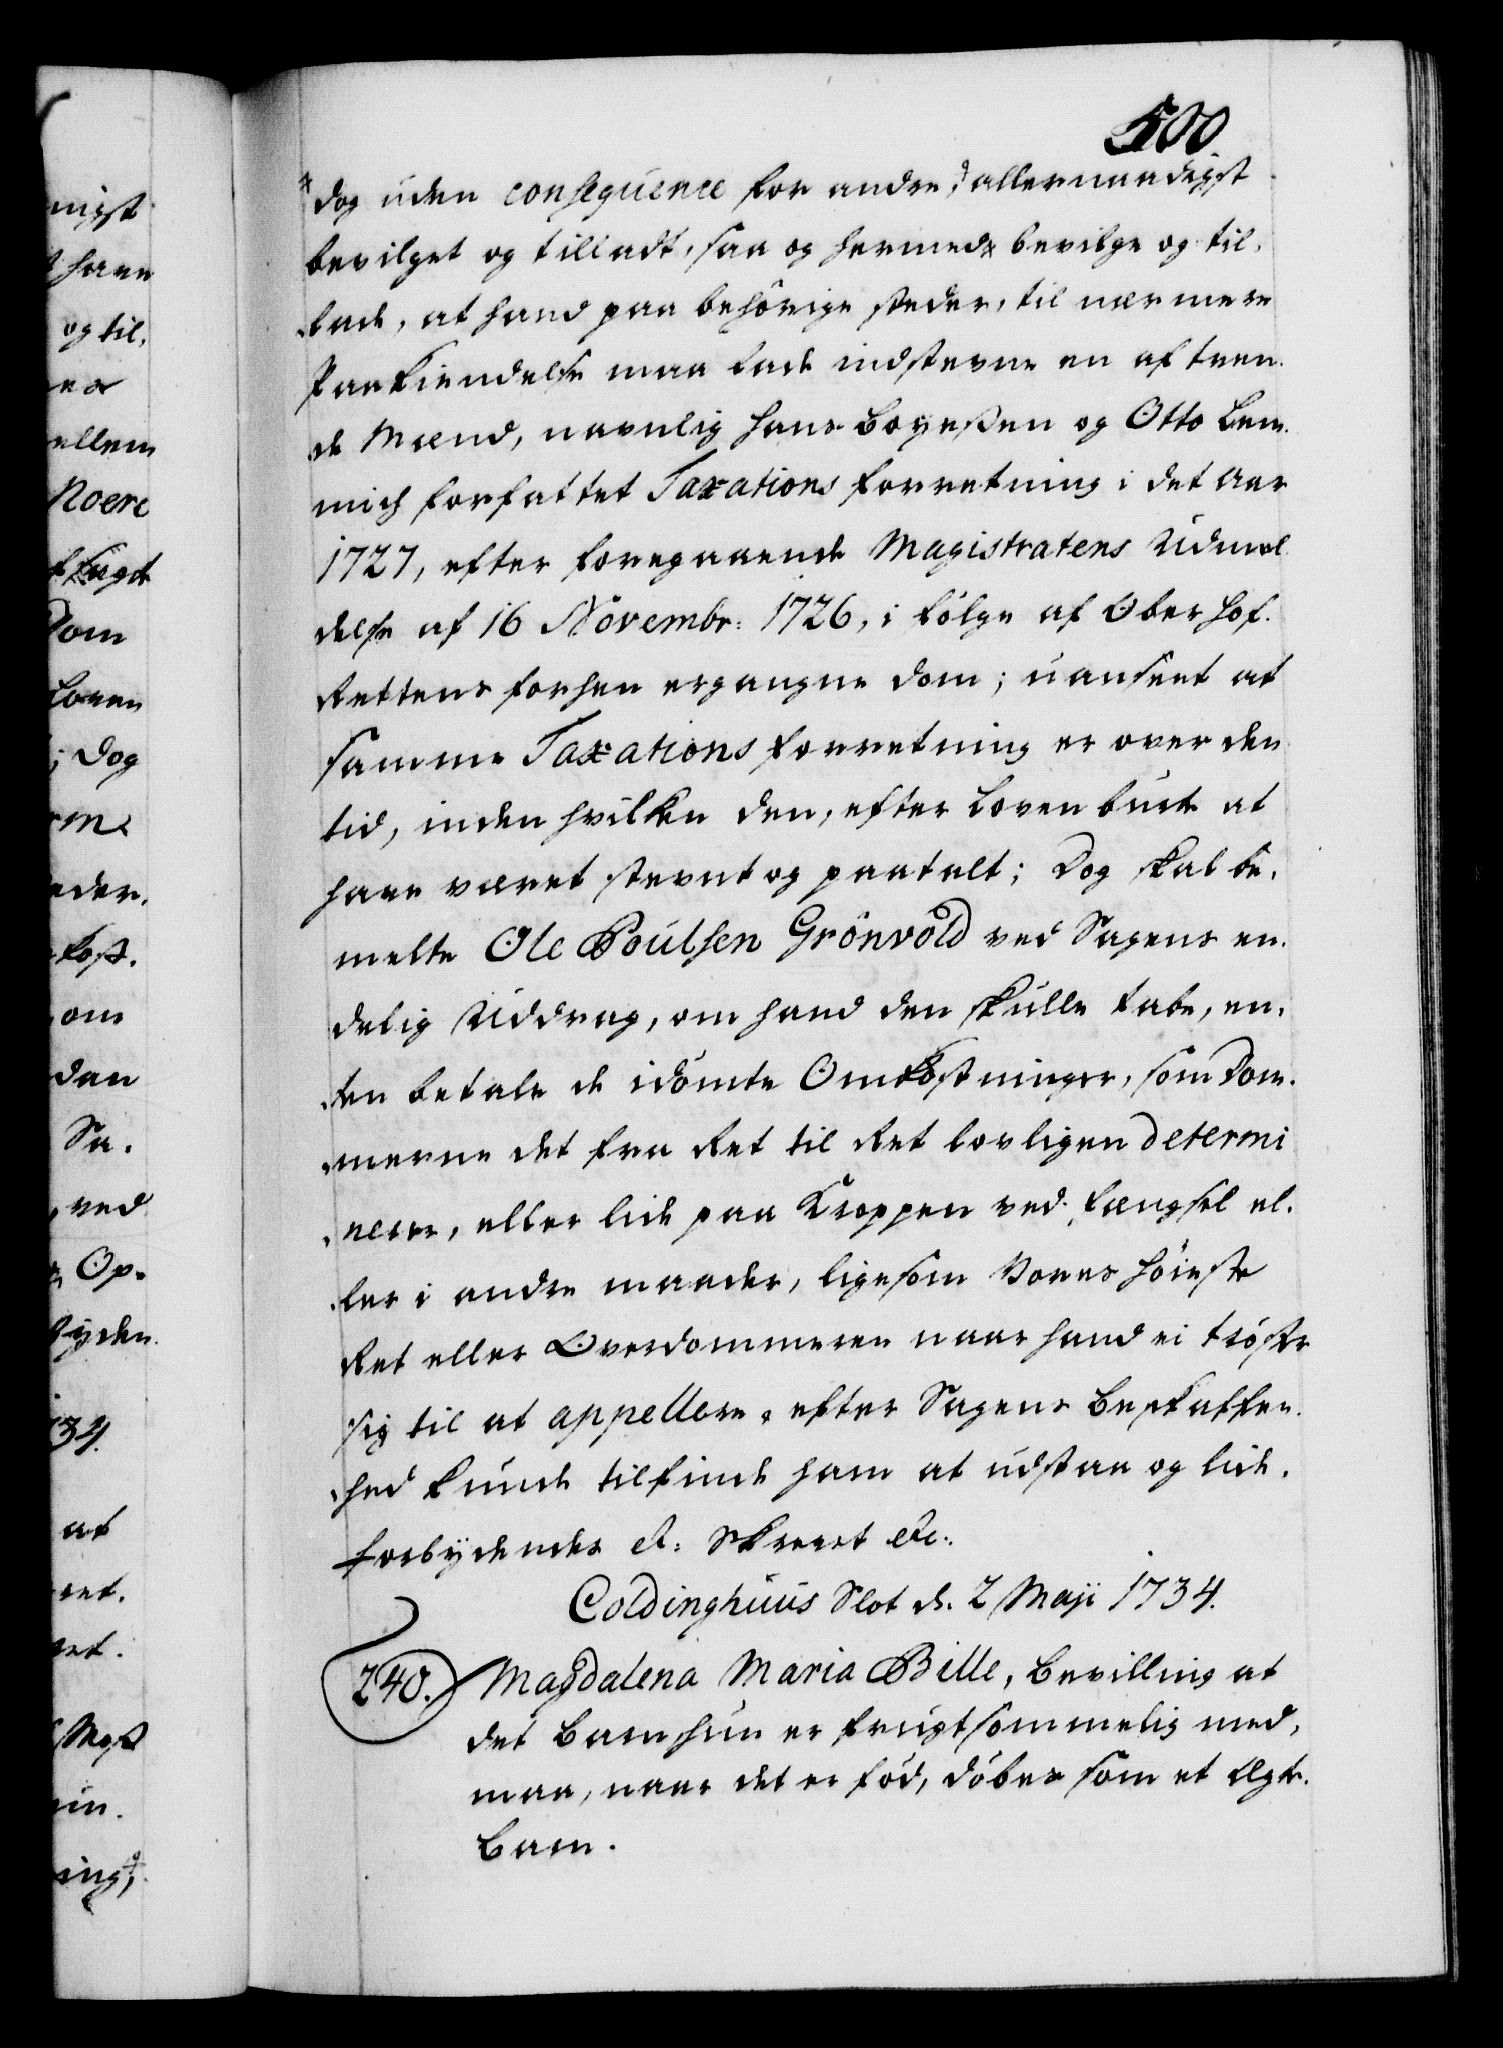 500
dog uden consequence for andre, allernaadigst
bevilget og tilladt, saa og hermed bevilge og til,
lade, at hand paa behörige steder, til nærmere
Paakiendelse maa lade indstevne en af tven
de Mænd, navnlig Hans Boyeßen og Otto Lem
mich forfattet Taxations forretning i det Aar
1727, efter foregaaende Magistratens Udmel
delse af 16 Novembr: 1726, i fölge af Oberhof
Rettens forhen ergangne dom; uanseet at
samme Taxations forretning er over den
tid, inden hvilken den, efter Loven burde at
have været stevnt og paatalt; Dog skal be,
melte Ole Poulsen Grönvold ved Sagens en
delig Uddrag, om hand den skulle tabe, en,
ten betale de idömte Omkostninger, som Dom,
merne det fra Ret til Ret lovligen determi
nerer, eller lide paa Kroppen ved fængsel el,
ler i andre maader, ligesom Vores höieste
Ret eller Overdommeren naar hand ei tröster
sig til at appellere, efter Sagens beskaffen
hed kunde tilfinde ham at udstaa og lide.
forbydendes et: Skrevet etc:
Coldinghuus Slot d. 2 Maji 1734.
240. Magdalena Maria Bille, bevilling at
det Barn hun er frugtsommelig med,
maa, naar det er föd, döbes som et Ægte
Barn.